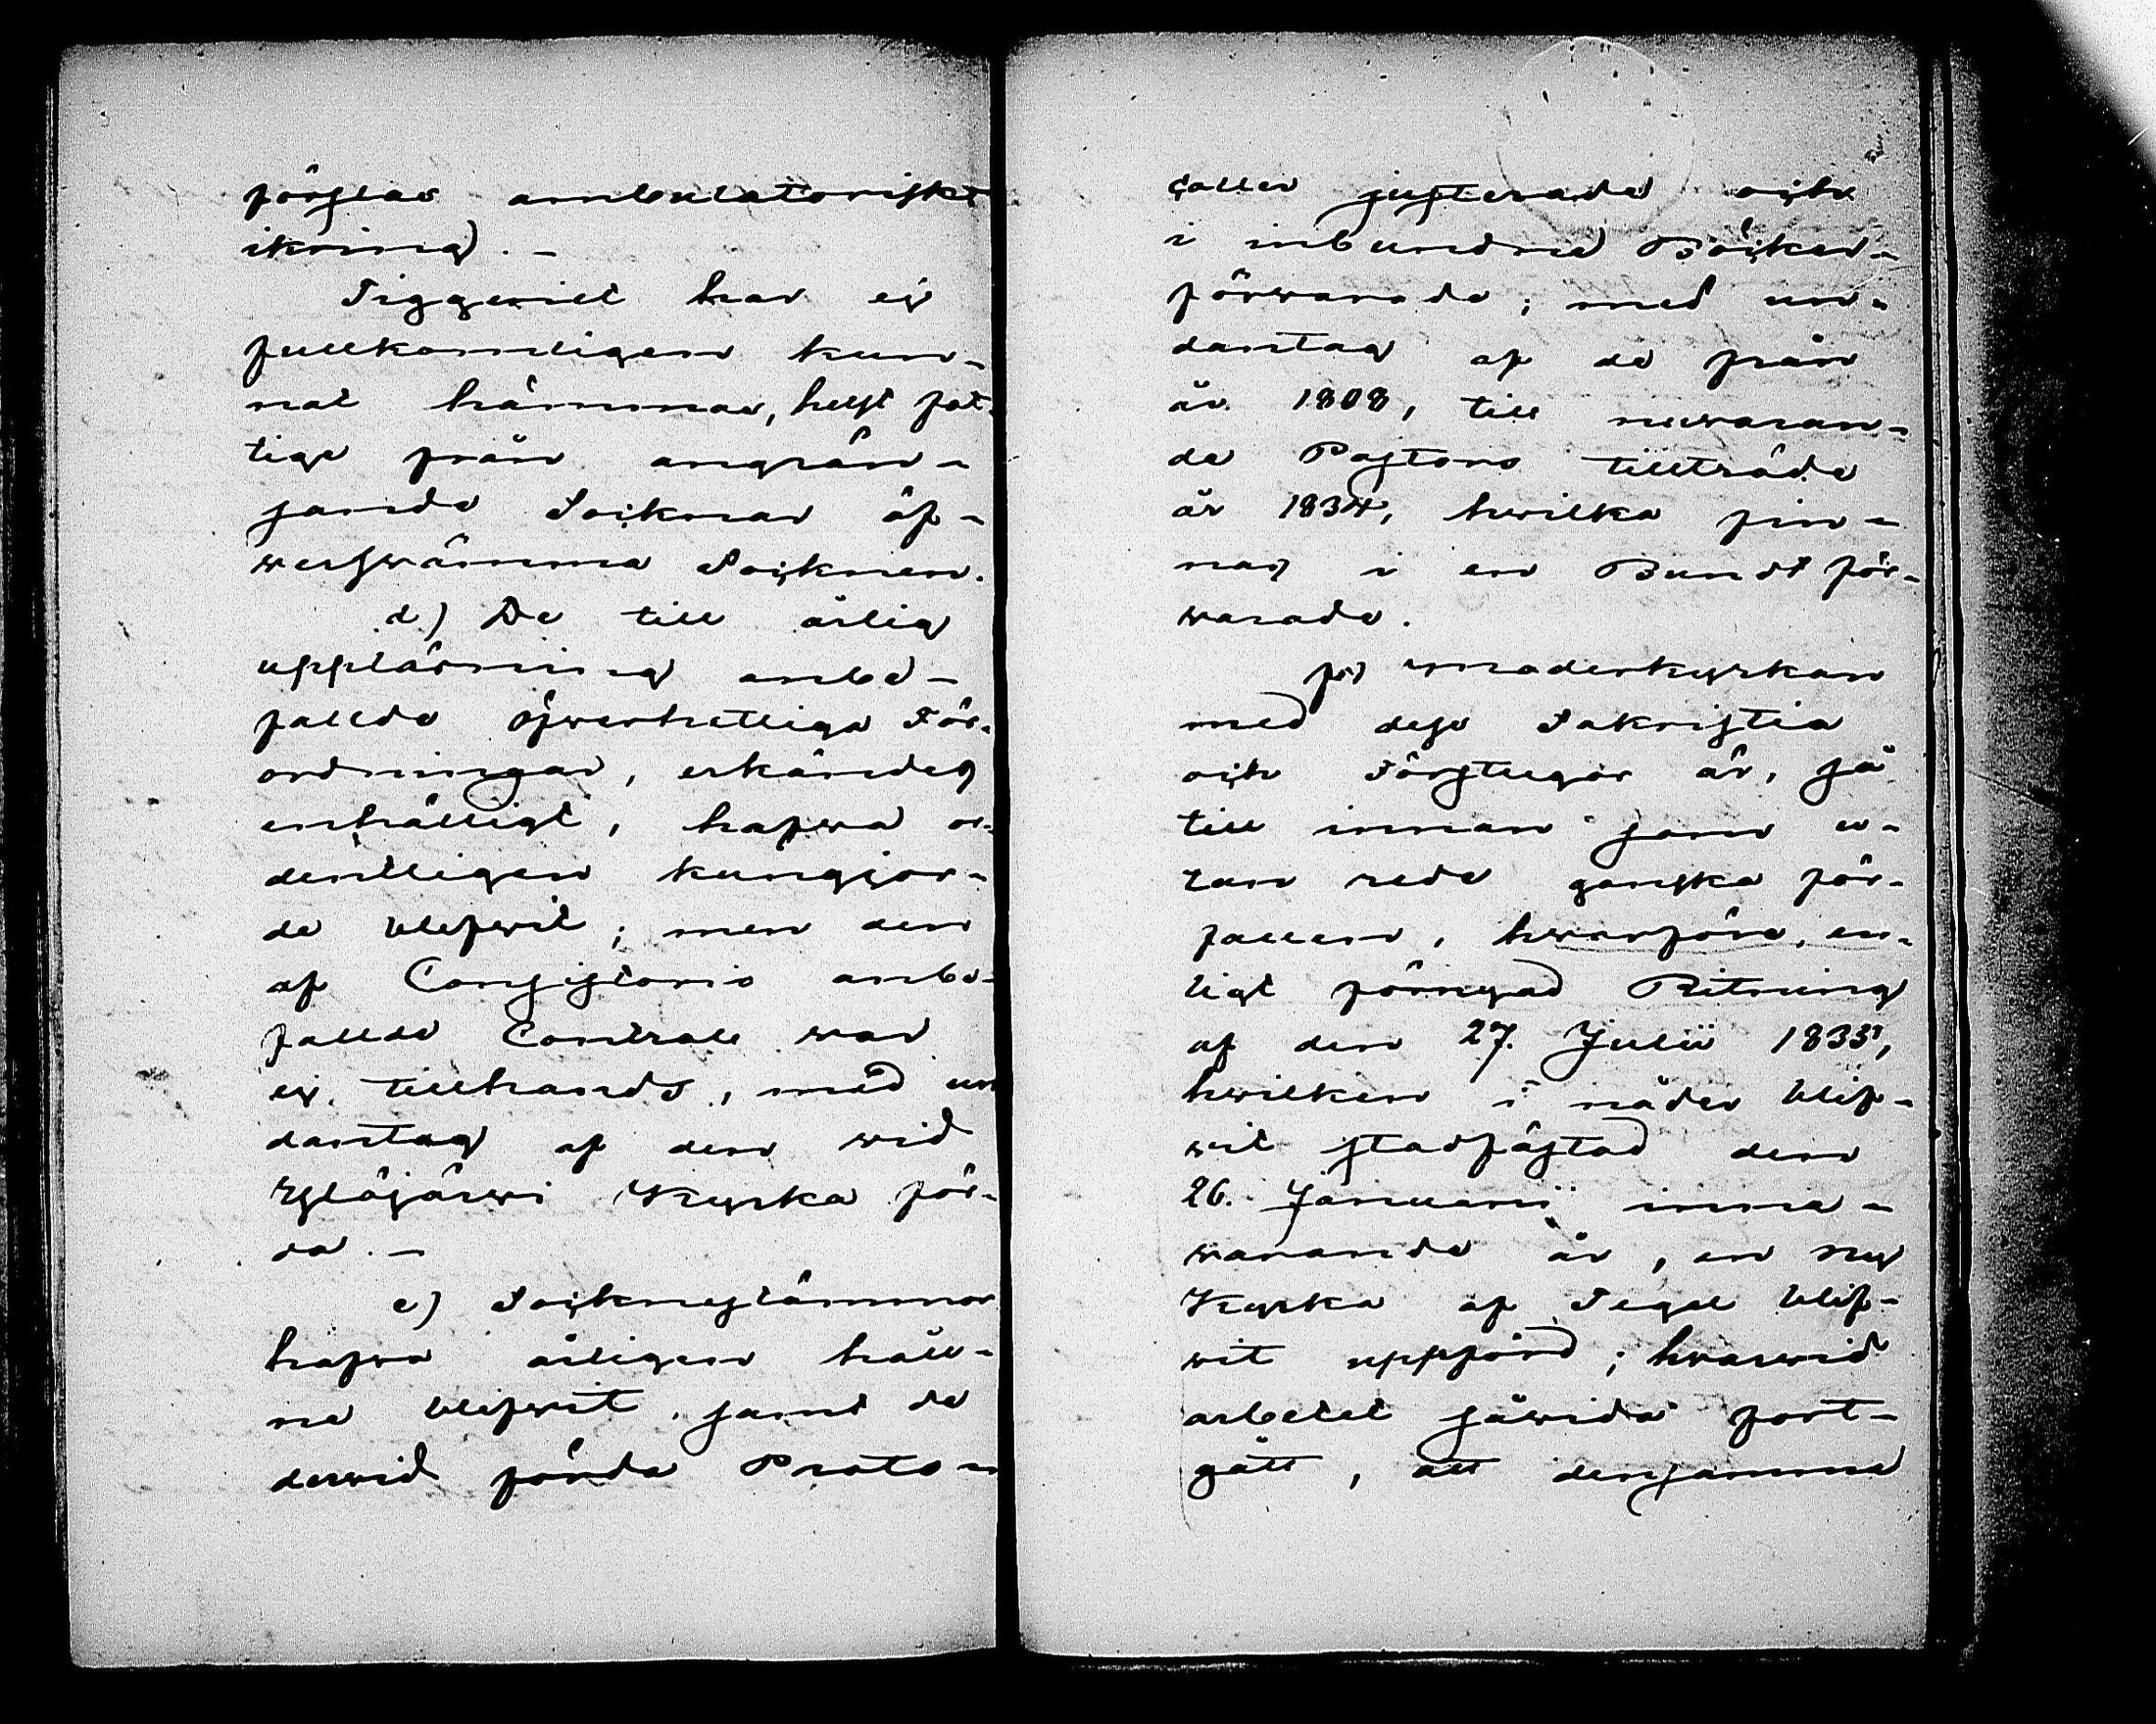 förslas ambulatoriskt
ikring). –
Tiggeriet har ej
fullkomligen kun-
nat hämmas, helst fat-
tige från angrän-
sande Socknar öf-
wersvämma Socknen.
d) De till årlig
uppläsning anbe-
fallde Öfwerhetliga För-
ordningar, erkändes
enhälligt, hafwa or-
dentligen kungjor-
de blifwit; men den
af Consistorio anbe-
fallde Controll war
ej tillhands, med un
dantag af den wid
Ylöjärwi Kyrka för-
da. –
e) Socknestämmor
hafwa årligen håll-
ne blifwit, samt de
derwid förda Proto-
coller justerade och
i inbundne Böcker
förwarade; med un-
dantag af de från
år 1808, till nuwaran-
de Pastors tillträde
år 1834, hwilka fin-
nas i en Bundt för-
warade.
f) Moderkyrkan
med dess Sakristia
och Förstugor är, så
till innan som u-
tan rede ganska för-
fallen, hwarföre, en-
ligt förnyad Ritning
af den 27. Julii 1835,
hwilken i nåder blif-
wit stadfästad den
26. Januarii inne-
warande år, en ny
Kyrka af Tegel blif-
wit uppförd; hwarwid
arbetet såwida fort-
gått, att densamme